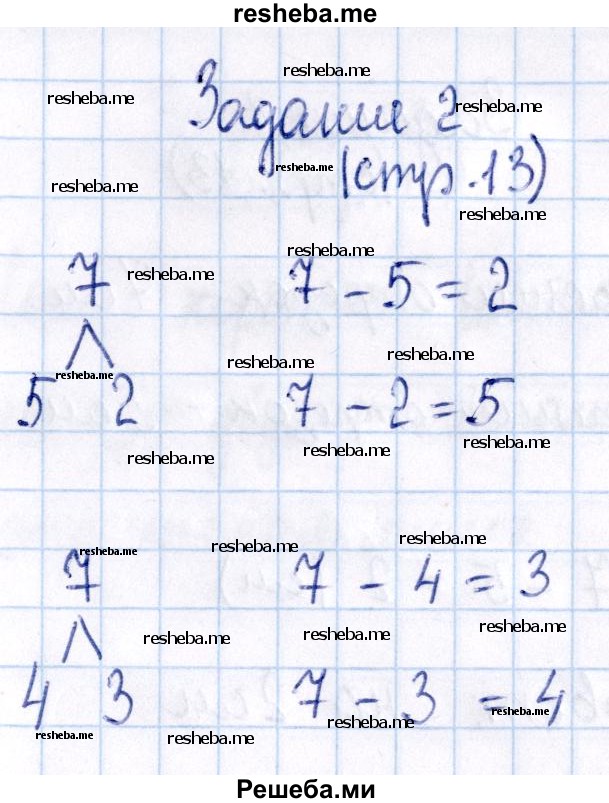 resheba.me
resheba.me
resheba.me
Задание 2
resheba.me
resheba.me
resheba.me
(стр.13)
resheba.me
resheba.me
7
resheba.me
7 - 5 = 2
resheba.me
resheba.me
resheba.me
5 2
7 - 2 = 5
resheba.me
resheba.me
resheba.me
resheba.me
resheba.me
resheba.me
7
7 - 4 = 3
resheba.me
resheba.me
resheba.me
4 3
7 - 3 = 4
resheba.me
resheba.me
resheba.me
resheba.me
Решеба.ми